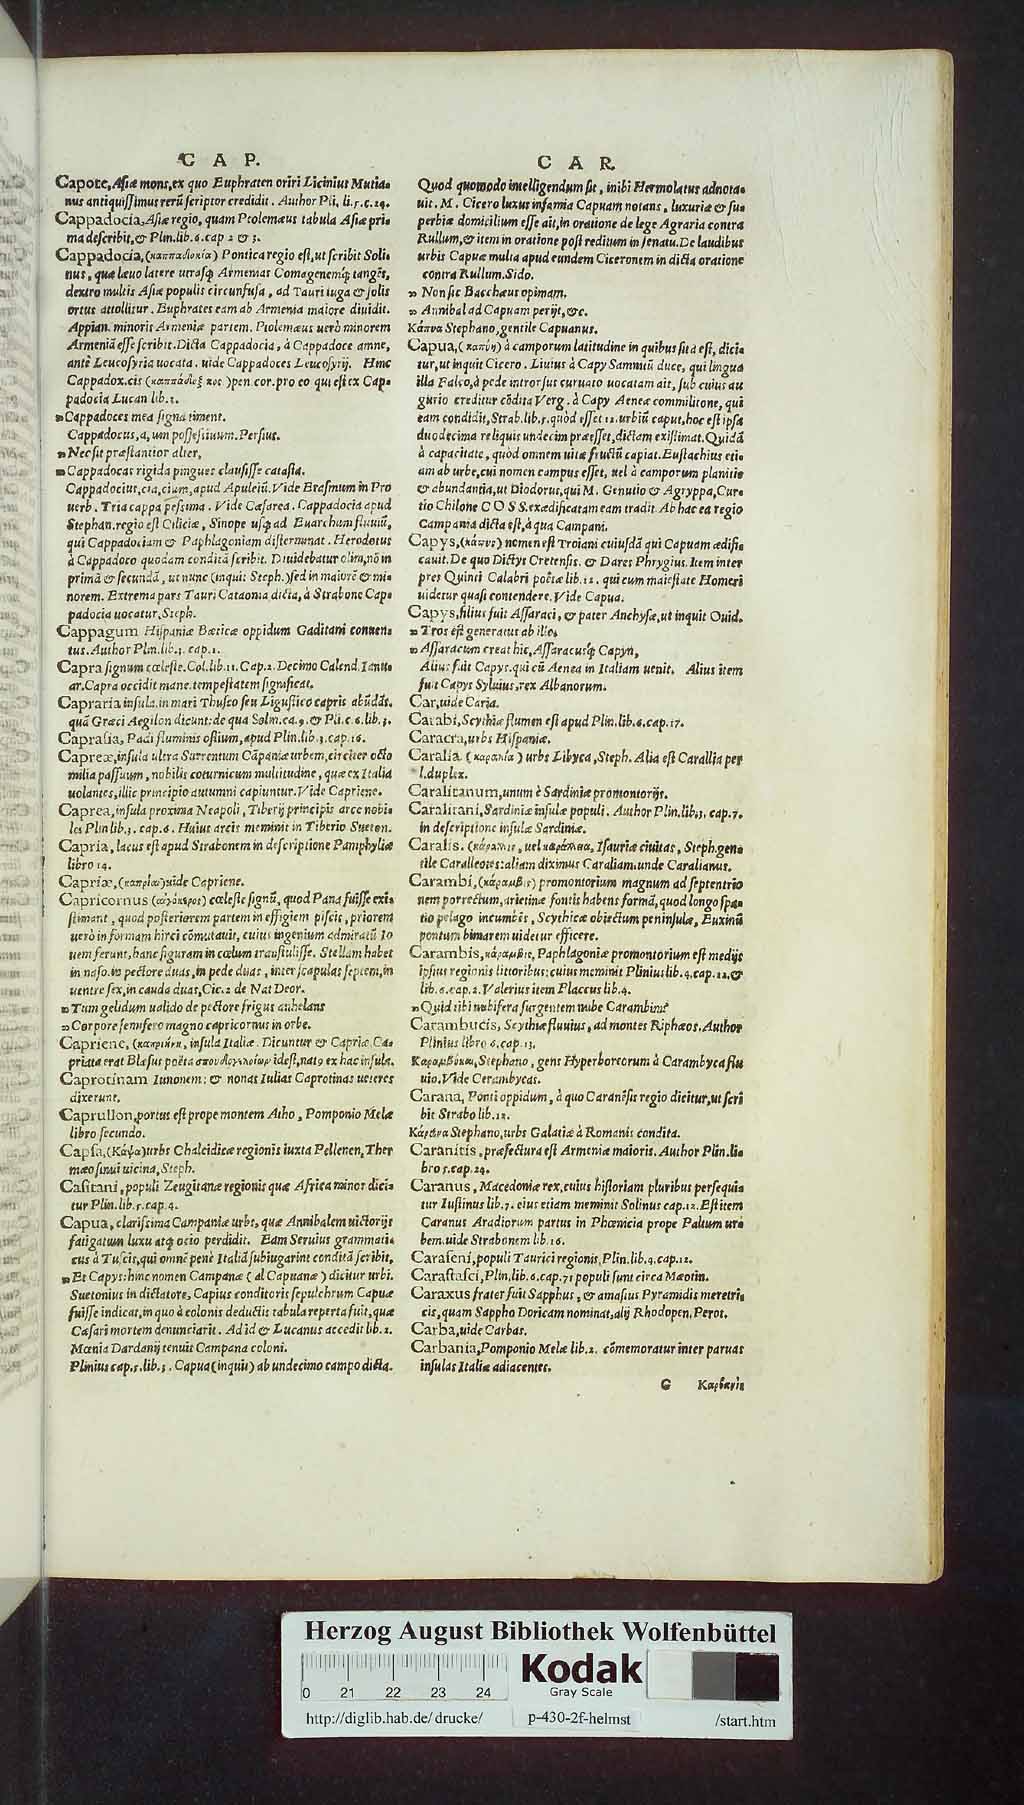 C A P.
Capote, Asiæ mons, ex quo Euphraten oriri Licinius Mutia-
nus antiquissimus rerũ scriptor credidit. Author Pli, li.5.c.24.
Cappadocia, Asiæ regio, quam Ptolemæus tabula Asiæ pri-
ma describit, & Plin.lib.6.cap 2 & 3.
Cappadocia, (καππαδοκία) Pontica regio est, ut scribit Soli-
nus, quæ læuo latere utrasq́; Armenias Comagenemq́; tangẽs,
dextro multis Asiæ populis circunfusa, ad Tauri iuga & solis
ortus attollitur. Euphrates eam ab Armenia maiore diuidit.
Appian. minoris Armeniæ partem. Ptolemæus uerò minorem
Armeniã esse scribit. Dicta Cappadocia, à Cappadoce amne,
antè Leucosyria uocata. uide Cappadoces Leucosyrij. Hinc
Cappadox.cis (καππάδοξ κος) pen.cor.pro eo qui est ex Cap-
padocia Lucan lib.2.
» Cappadoces mea signa timent.
Cappadocus, a, um possessiuum. Persius.
» Nec sit præstantior alter,
» Cappadocas rigida pingues clausisse catasta.
Cappadociur, cia, cium, apud Apuleiũ. Vide Erasmum in Pro
uerb. Tria cappa pessima. Vide Cæsarea. Cappadocia apud
Stephan.regio est Ciliciæ, Sinope usq́; ad Euarchum fluuiũ,
qui Cappadociam & Paphlagoniam disterminat. Herodotus
à Cappadoco quodam conditã scribit. Diuidebatur olim, nõ in
primã & secundã, ut nunc (inquit Steph.) sed in maiorẽ & mi-
norem. Extrema pars Tauri Cataonia dicta, à Strabone Cap-
padocia uocatur, Steph.
Cappagum Hispaniæ Bæticæ oppidum Gaditani conuen-
tus. Author Plin.lib.3. cap.1.
Capra signum cœleste. Col.lib.11. Cap.2. Decimo Calend. Ianu-
ar. Capra occidit mane. tempestatem significat.
Capraria insula. in mari Thusco seu Ligustico capris abũdãs.
quã Græci Aegilon dicunt: de qua Solin.ca.9. & Pli.c.6.lib.3.
Caprasia, Padi fluminis ostium, apud Plin.lib.3.cap.16.
Capreæ, insula ultra Surrentum Cãpaniæ urbem, circiter octo
milia passuum, nobilis coturnicum multitudine, quæ ex Italia
uolantes, illic principio autumni capiuntur. Vide Capriene.
Caprea, insula proxima Neapoli, Tiberij principis arce nobi-
les Plin lib.3. cap.6. Huius arcis meminit in Tiberio Sueton.
Capria, lacus est apud Strabonem in descriptione Pamphyliæ
libro 14.
Capriæ, (καπρίαι) uide Capriene.
Capricornus (αἰγόκερος) cœleste signũ, quod Pana fuisse exi-
stimant, quod posteriorem partem in effigiem piscis, priorem
uerò in formam hirci cõmutauit, cuius ingenium admiratũ Io
uem ferunt, hanc figuram in cœlum transtulisse. Stellam habet
in naso. in pectore duas, in pede duas, inter scapulas septem, in
uentre sex, in cauda duas, Cic.2 de Nat Deor.
» Tum gelidum ualido de pectore frigus anhelans
» Corpore semifero magno capricornus in orbe.
Capriene, (καπριήνη, insula Italiæ. Dicuntur & Capriæ, Ca-
priata erat Blæsus poëta σπουδογελοίων idest, natꝰ ex hac insula.
Caprotinam Iunonem: & nonas Iulias Caprotinas ueteres
dixerunt.
Caprullon, portus est prope montem Atho, Pomponio Melæ
libro secundo.
Capsa, (Κάψα) urbs Chalcidicæ regionis iuxta Pellenen, Ther
mæo sinui uicina, Steph.
Casitani, populi Zeugitanæ regionis quæ Africa minor dici-
tur Plin.lib.5.cap.4.
Capua, clarissima Campaniæ urbs, quæ Annibalem uictorijs
fatigatum luxu atq́; ocio perdidit. Eam Seruius grammati-
cus à Tuscis, qui omnẽ penè Italiã subiugarint conditã scribit.
» Et Capys: hinc nomen Campanæ (al Capuanæ) dicitur urbi.
Suetonius in dictatore, Capius conditoris sepulchrum Capuæ
fuisse indicat, in quo à colonis deductis tabula reperta fuit, quæ
Cæsari mortem denunciarit. Ad id & Lucanus accedit lib.2.
Mœnia Dardanij tenuit Campana coloni.
Plinius cap.5.lib.3. Capua (inquit) ab undecimo campo dicta.
C A R.
Quod quomodo intelligendum sit, inibi Hermolatus adnota-
uit. M. Cicero luxus infamia Capuam notans, luxuriæ & su-
perbiæ domicilium esse ait, in oratione de lege Agraria contra
Rullum, & item in oratione post reditum in senatu. De laudibus
urbis Capuæ multa apud eundem Ciceronem in dicta oratione
contra Rullum. Sido.
» Non sic Bacchæus opimam.
» Annibal ad Capuam perijt, &c.
Κάπυα Stephano, gentile Capuanus.
Capua, (καπύη) à camporum latitudine in quibus sita est, dici-
tur, ut inquit Cicero. Liuius à Capy Samniũ duce, qui lingua
illa Falco, à pede introrsus curuato uocatam ait, sub cuius au
gurio creditur cõdita Verg. à Capy Aeneæ commilitone, qui
eam condidit, Strab.lib.5. quòd esset 12. urbiũ caput, hoc est ipsa
duodecima reliquis undecim præesset, dictam existimat. Quidã
à capacitate, quòd omnem uitæ fructũ capiat. Eustachius eti-
am ab urbe, cui nomen campus esset, uel à camporum planitie
& abundantia, ut Diodorus, qui M. Genutio & Agryppa, Cur-
tio Chilone C O S S. exædificatam eam tradit. Ab hac ea regio
Campania dicta est, à qua Campani.
Capys, (κάπυς) nomen est Troiani cuiusdã qui Capuam ædifi-
cauit. De quo Dictys Cretensis. & Dares Phrygius. Item inter
pres Quinti Calabri poëtæ lib.12. qui cum maiestate Homeri
uidetur quasi contendere. Vide Capua.
Capys, filius fuit Assaraci, & pater Anchysæ, ut inquit Ouid.
» Tros est generatus ab illo,
» Assaracum creat hic, Assaracusq́; Capyn,
Alius fuit Capys. qui cũ Aenea in Italiam uenit. Alius item
fuit Capys Syluius, rex Albanorum.
Car, uide Caria.
Carabi, Scythiæ flumen est apud Plin.lib.6.cap.17.
Caracra, urbs Hispaniæ.
Caralia (καραλία) urbs Libyca, Steph. Alia est Carallia per
l. duplex.
Caralitanum, unum è Sardiniæ promontorijs.
Caralitani, Sardiniæ insulæ populi. Author Plin.lib.3. cap.7.
in descriptione insulæ Sardiniæ.
Caralis. (κάραλις, uel καράλλια, Isauriæ ciuitas, Steph.gen-
tile Caralleotes: aliam diximus Caraliam. unde Caralianus.
Carambi, (κάραμβις) promontorium magnum ad septentrio
nem porrectum, arietinæ fontis habens formã, quod longo spa-
tio pelago incumbẽs, Scythicæ obiectum peninsulæ, Euxinũ
pontum bimarem uidetur efficere.
Carambis, κάραμβις, Paphlagoniæ promontorium est medijs
ipsius regionis littoribus: cuius meminit Plinius lib.4.cap.12. &
lib.6.cap.2. Valerius item Flaccus lib.4.
» Quid tibi nubifera surgentem nube Carambim?
Carambucis, Scythiæ fluuius, ad montes Riphæos. Author
Plinius libro 6.cap.13.
Καραμβύκαι, Stephano, gens Hyperboreorum à Carambyca flu
uio. Vide Cerambycas.
Carana, Ponti oppidum, à quo Caranẽsis regio dicitur, ut scri
bit Strabo lib.12.
Κάρανα Stephano, urbs Galatiæ à Romanis condita.
Caranitis, præfectura est Armeniæ maioris. Author Plin.li-
bro 5.cap.24.
Caranus, Macedoniæ rex, cuius historiam pluribus persequi-
tur Iustinus lib.7. eius etiam meminit Solinus cap.12. Est item
Caranus Aradiorum partus in Phœnicia prope Paltum ur-
bem. uide Strabonem lib.16.
Caraseni, populi Taurici regionis, Plin.lib.4.cap.12.
Carastasci, Plin.lib.6.cap.7: populi sunt circa Mæotin.
Caraxus frater fuit Sapphus, & amasius Pyramidis meretri-
cis, quam Sappho Doricam nominat, alij Rhodopen, Perot.
Carba, uide Carbas.
Carbania, Pomponio Melæ lib.2. cõmemoratur inter paruas
insulas Italiæ adiacentes.
G Καρβανὶς
Herzog August Bibliothek Wolfenbüttel
Kodak
Gray Scale
0 21 22 23 24
http://diglib.hab.de/drucke/ p-430-2f-helmst /start.htm